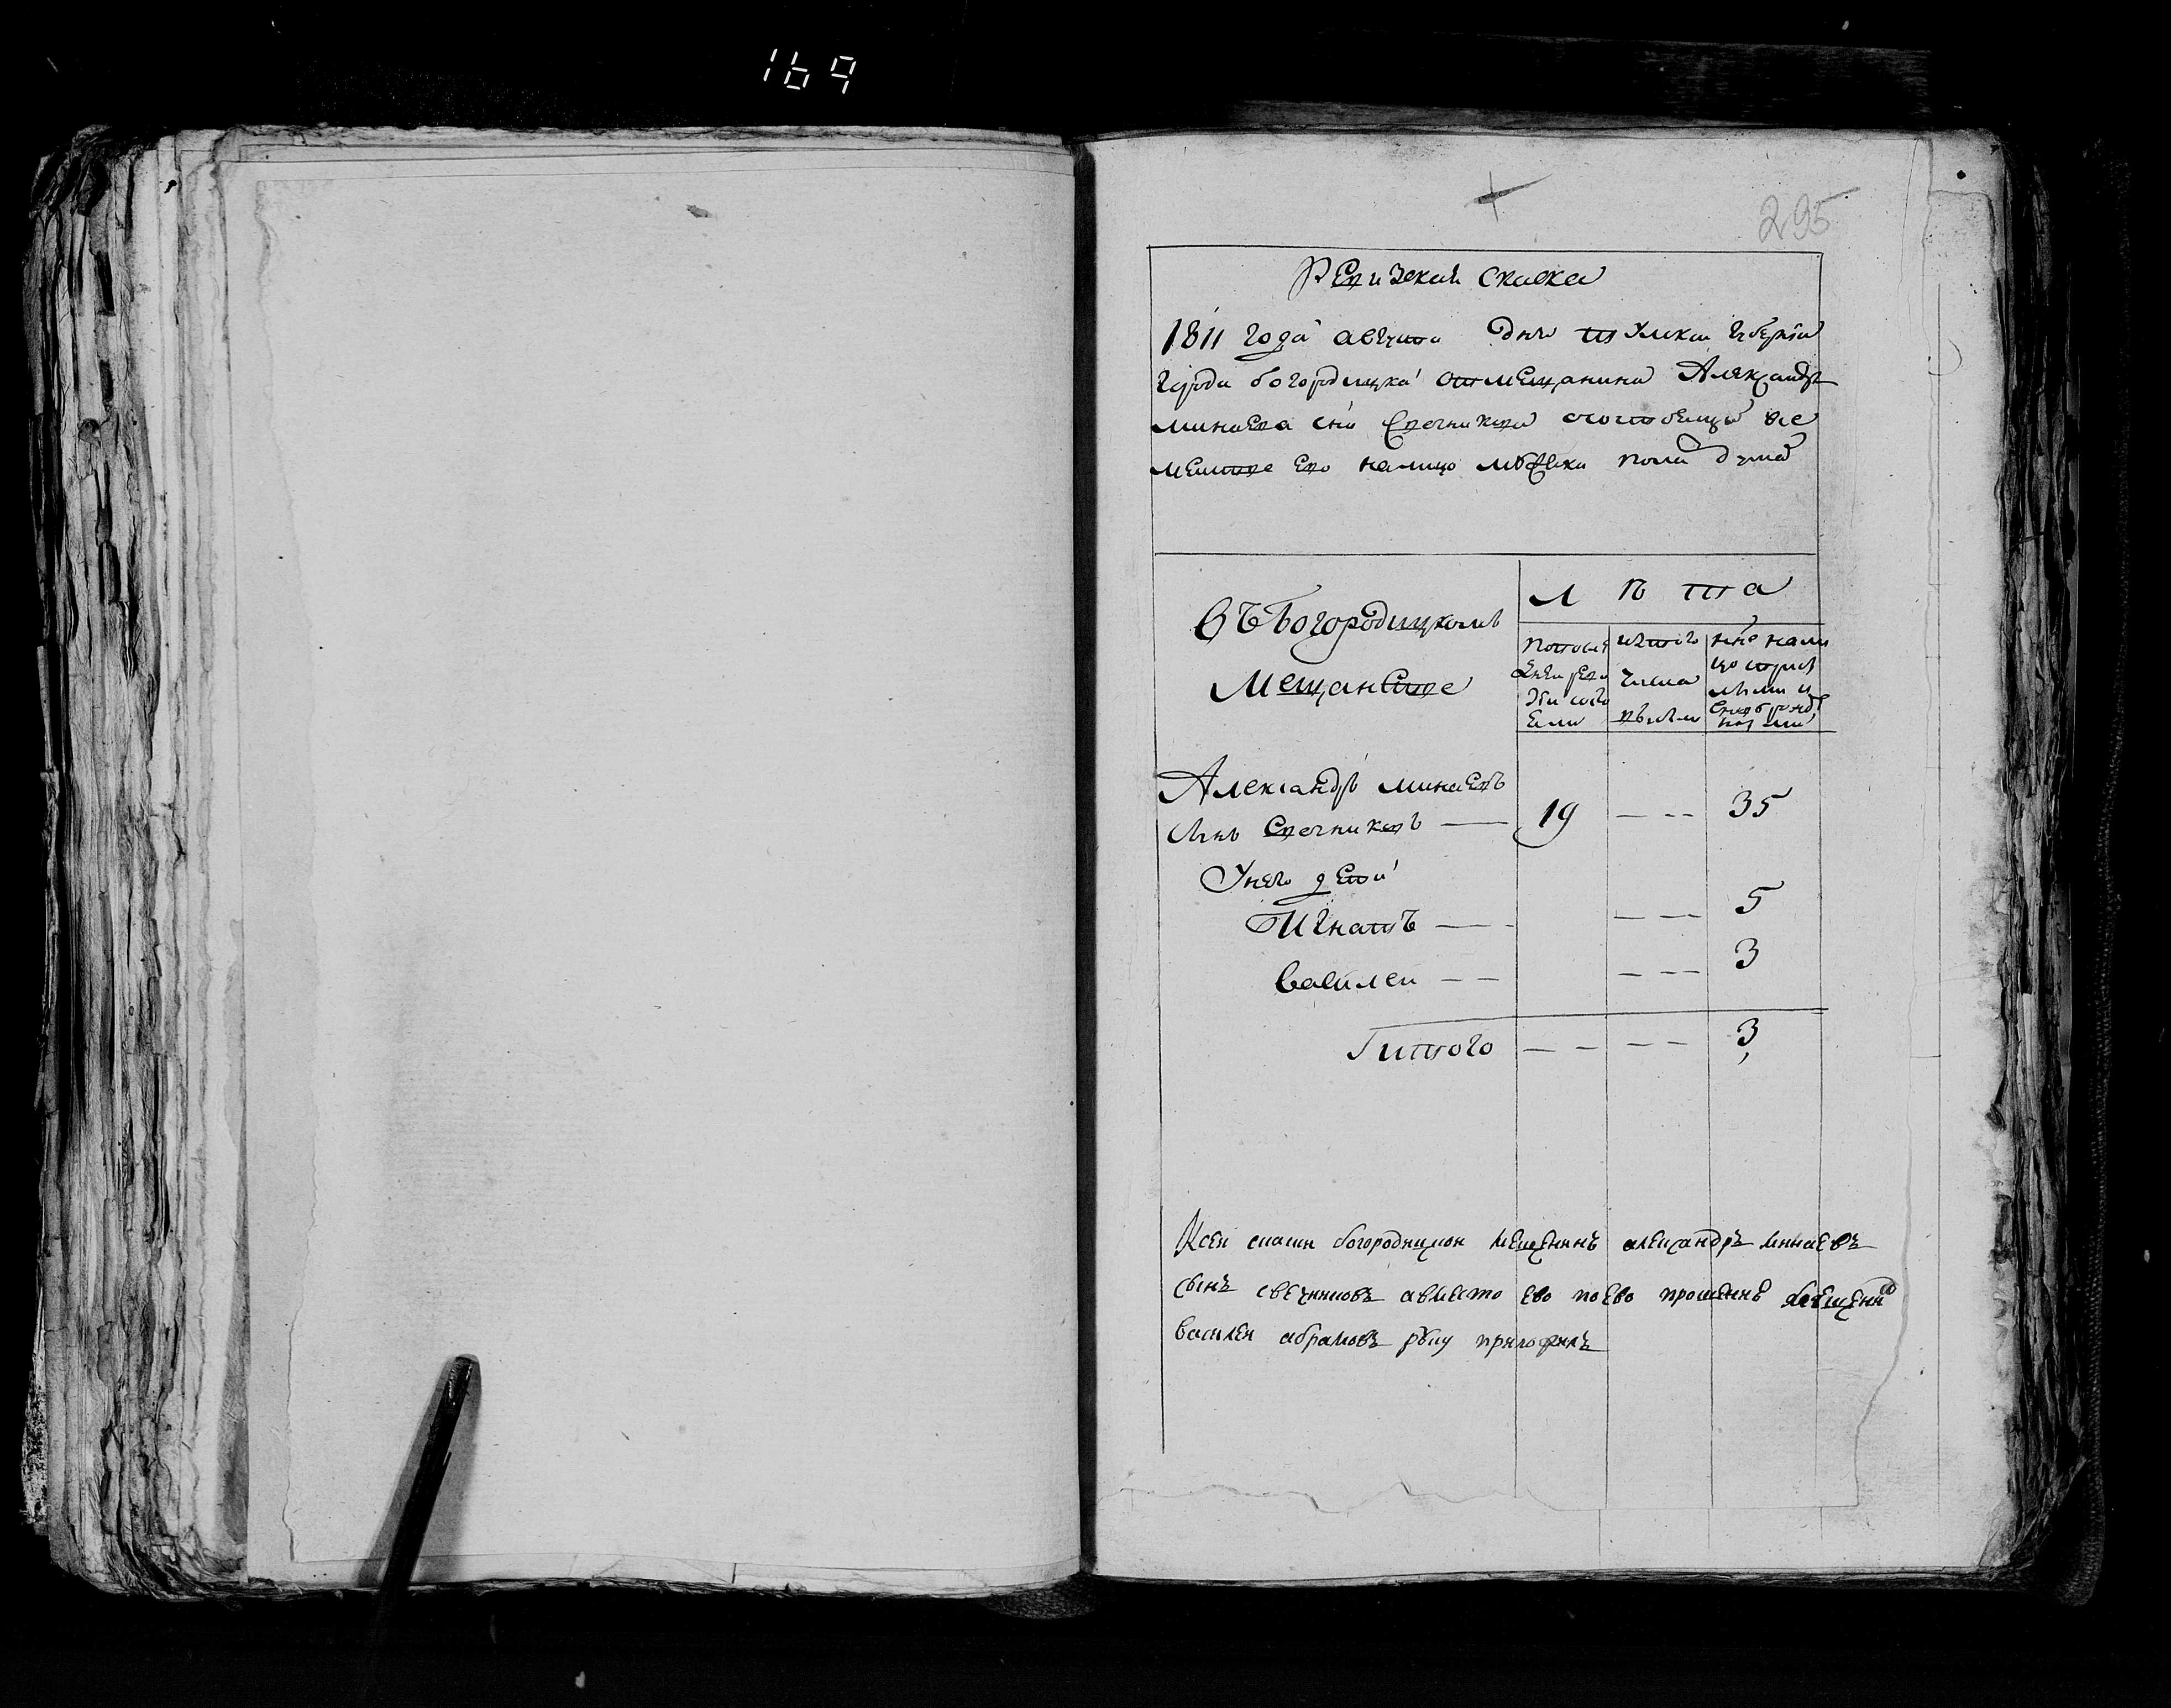 169
295
Ревизская скаска
1811 года августа дня тулской губернии
города богородицка от мещанина Александра
минаева сна Свечникова состоящих вее
местве ево налицо мужска пола душ
Въ Богородицкомъ
Мещанстве
Л ѣ т а
Попосле
дней реви
зiи состо
яли
изтого
числа
выбыло
нне нали
цо сприбы
лыми и
вновь рожде
нными
Александръ минаевъ
Сынъ Свечниковъ — 19 — — — 35
Унего детей
Игнатъ — — — — 5
Василеи — — — — — 3
Итого — — — — 3
Ксеи скаски богородицкои мещенинъ александръ минаевъ
сынъ свечниковъ авместо ево поево прошению мещенинъ
василеи абрамовъ руку приложилъ